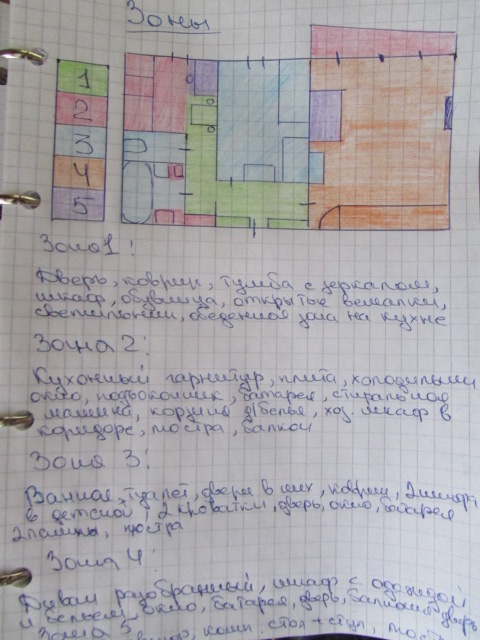 Зоны
1
2
3
4
5
Зона 1:
Дверь, коврик, тумба с зеркалом,
шкаф, обувница, открытые вешалки,
светильники, обеденная зона на кухне
Зона 2:
Кухонный гарнитур, плита, холодильник
окно, подоконник, батарея, стиральная
машинка, корзина д/белья, хоз. шкаф в
коридоре, люстра, балкон
Зона 3:
Ванная, туалет, двери в них, коврик,
в детской, 2 кроватки, дверь, окно, батарея
2 лампы, люстра
Зона 4:
Диван разобранный, шкаф с одеждой
и бельем, окно, батарея, дверь, балконная дверь
Зона 5
комп. стол + стул,